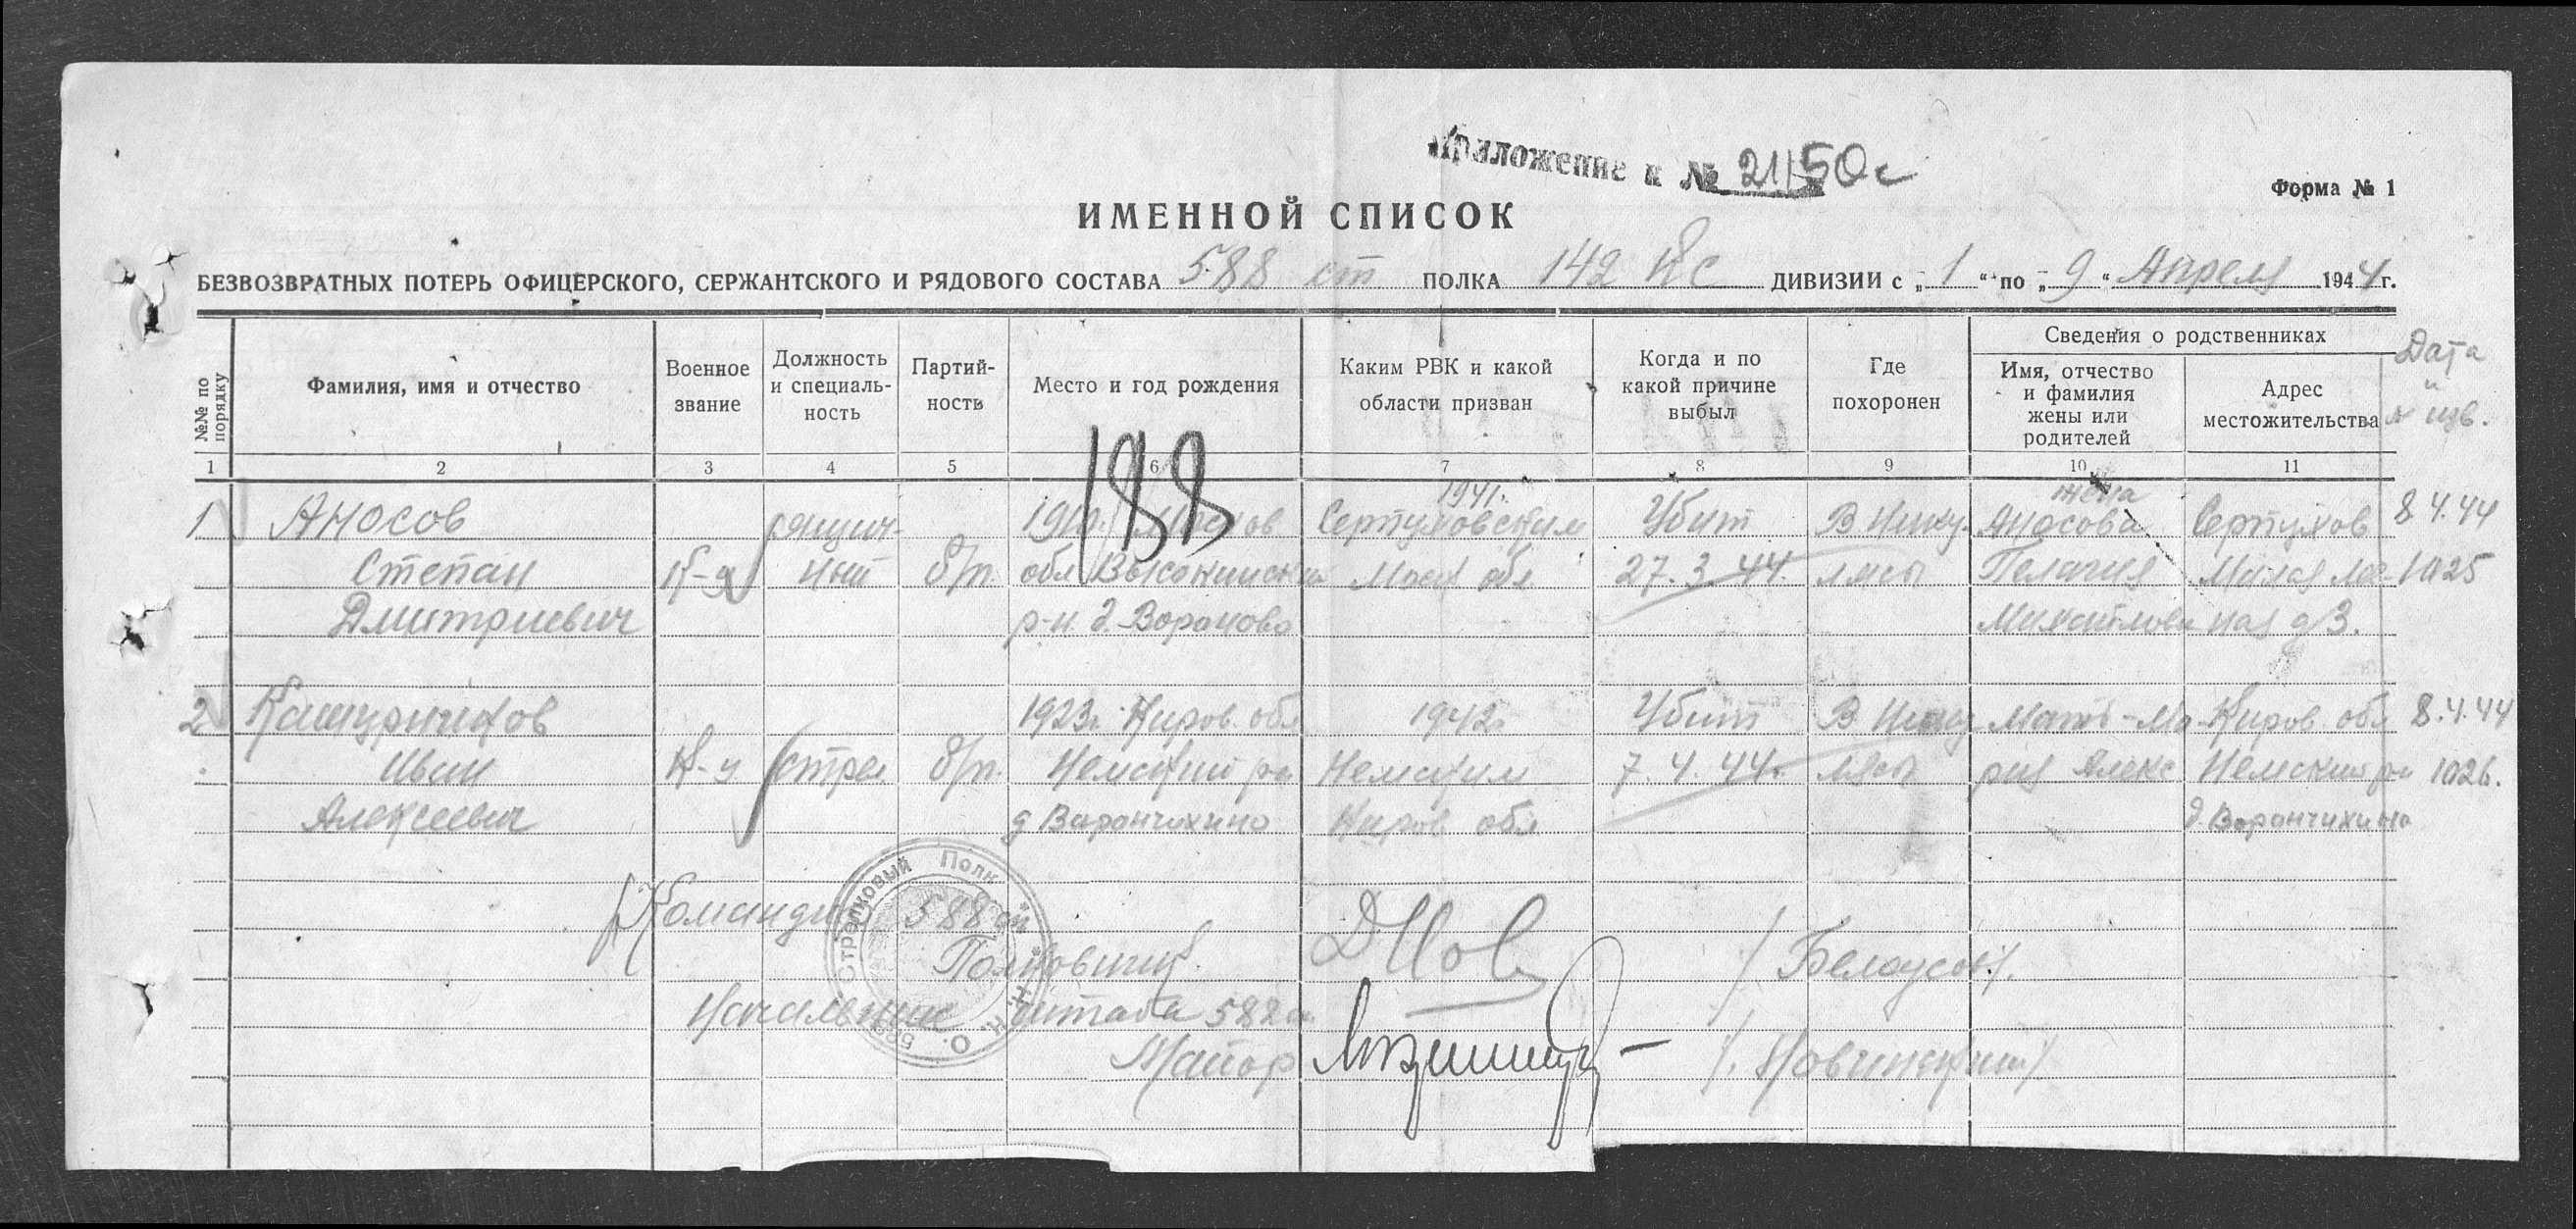 Приложение к № 21150с
Форма № 1
ИМЕННОЙ СПИСОК
БЕЗВОЗВРАТНЫХ ПОТЕРЬ ОФИЦЕРСКОГО, СЕРЖАНТСКОГО И РЯДОВОГО СОСТАВА 588 сп ПОЛКА 142 ДИВИЗИИ с „1“ по „9“ Апреля 1944 г.
№№ по порядку
Фамилия, имя и отчество
Военное звание
Должность и специаль-
ность
Партий-
ность
Место и год рождения
Каким РВК и какой
области призван
Когда и по
какой причине
выбыл
Где
похоронен
Сведения о родственниках
Имя, отчество
и фамилия
жены или
родителей
Адрес
местожительства
Дата
и
№ изв.
1 2 3 4 5 6 7 8 9 10 11
188
1941г. жена
1 Аносов Москов Серпуховским Убит Аносова Серпухов 8.4.44
Степан К-ц б/п. обл Моск обл 27.3.44. Пелагия 1025
Дмитриевич р-н д. Вороново д/3.
2 1923г. Киров. обл 1942г Убит Мать - Ма- Киров. обл 8.4.44
Иван К-ц стрел б/п. Немский р-н Немским 7.4.44. рия Алекс Немский р-н 1026.
Алексеевич д Ворончихино Киров обл д. Ворончихино
Командир 588 сп
Полковник /Белоусов/.
Начальник штаба 588 сп
Майор /Новинский/
Стрелковый Полк
Н. К. О.